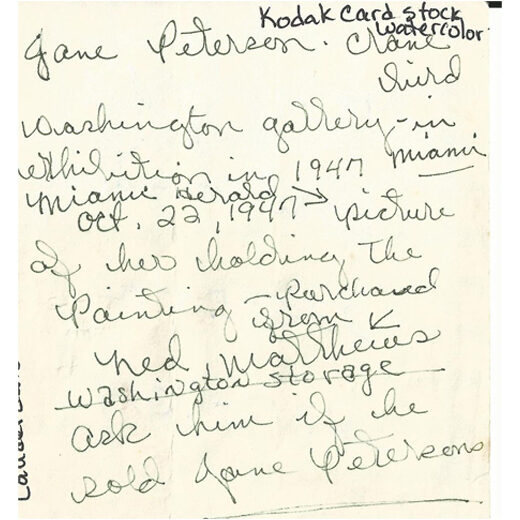 Kodak Card stock
watercolor
Jane Peterson. Crane
third
Washington gallery - in
exhibition in 1947 Miami
Miami Herald
Oct. 22, 1947 → picture
of her holding the
Painting - Purchased
from
Ned Matthews
Washington storage
ask him if he
sold Jane Petersons